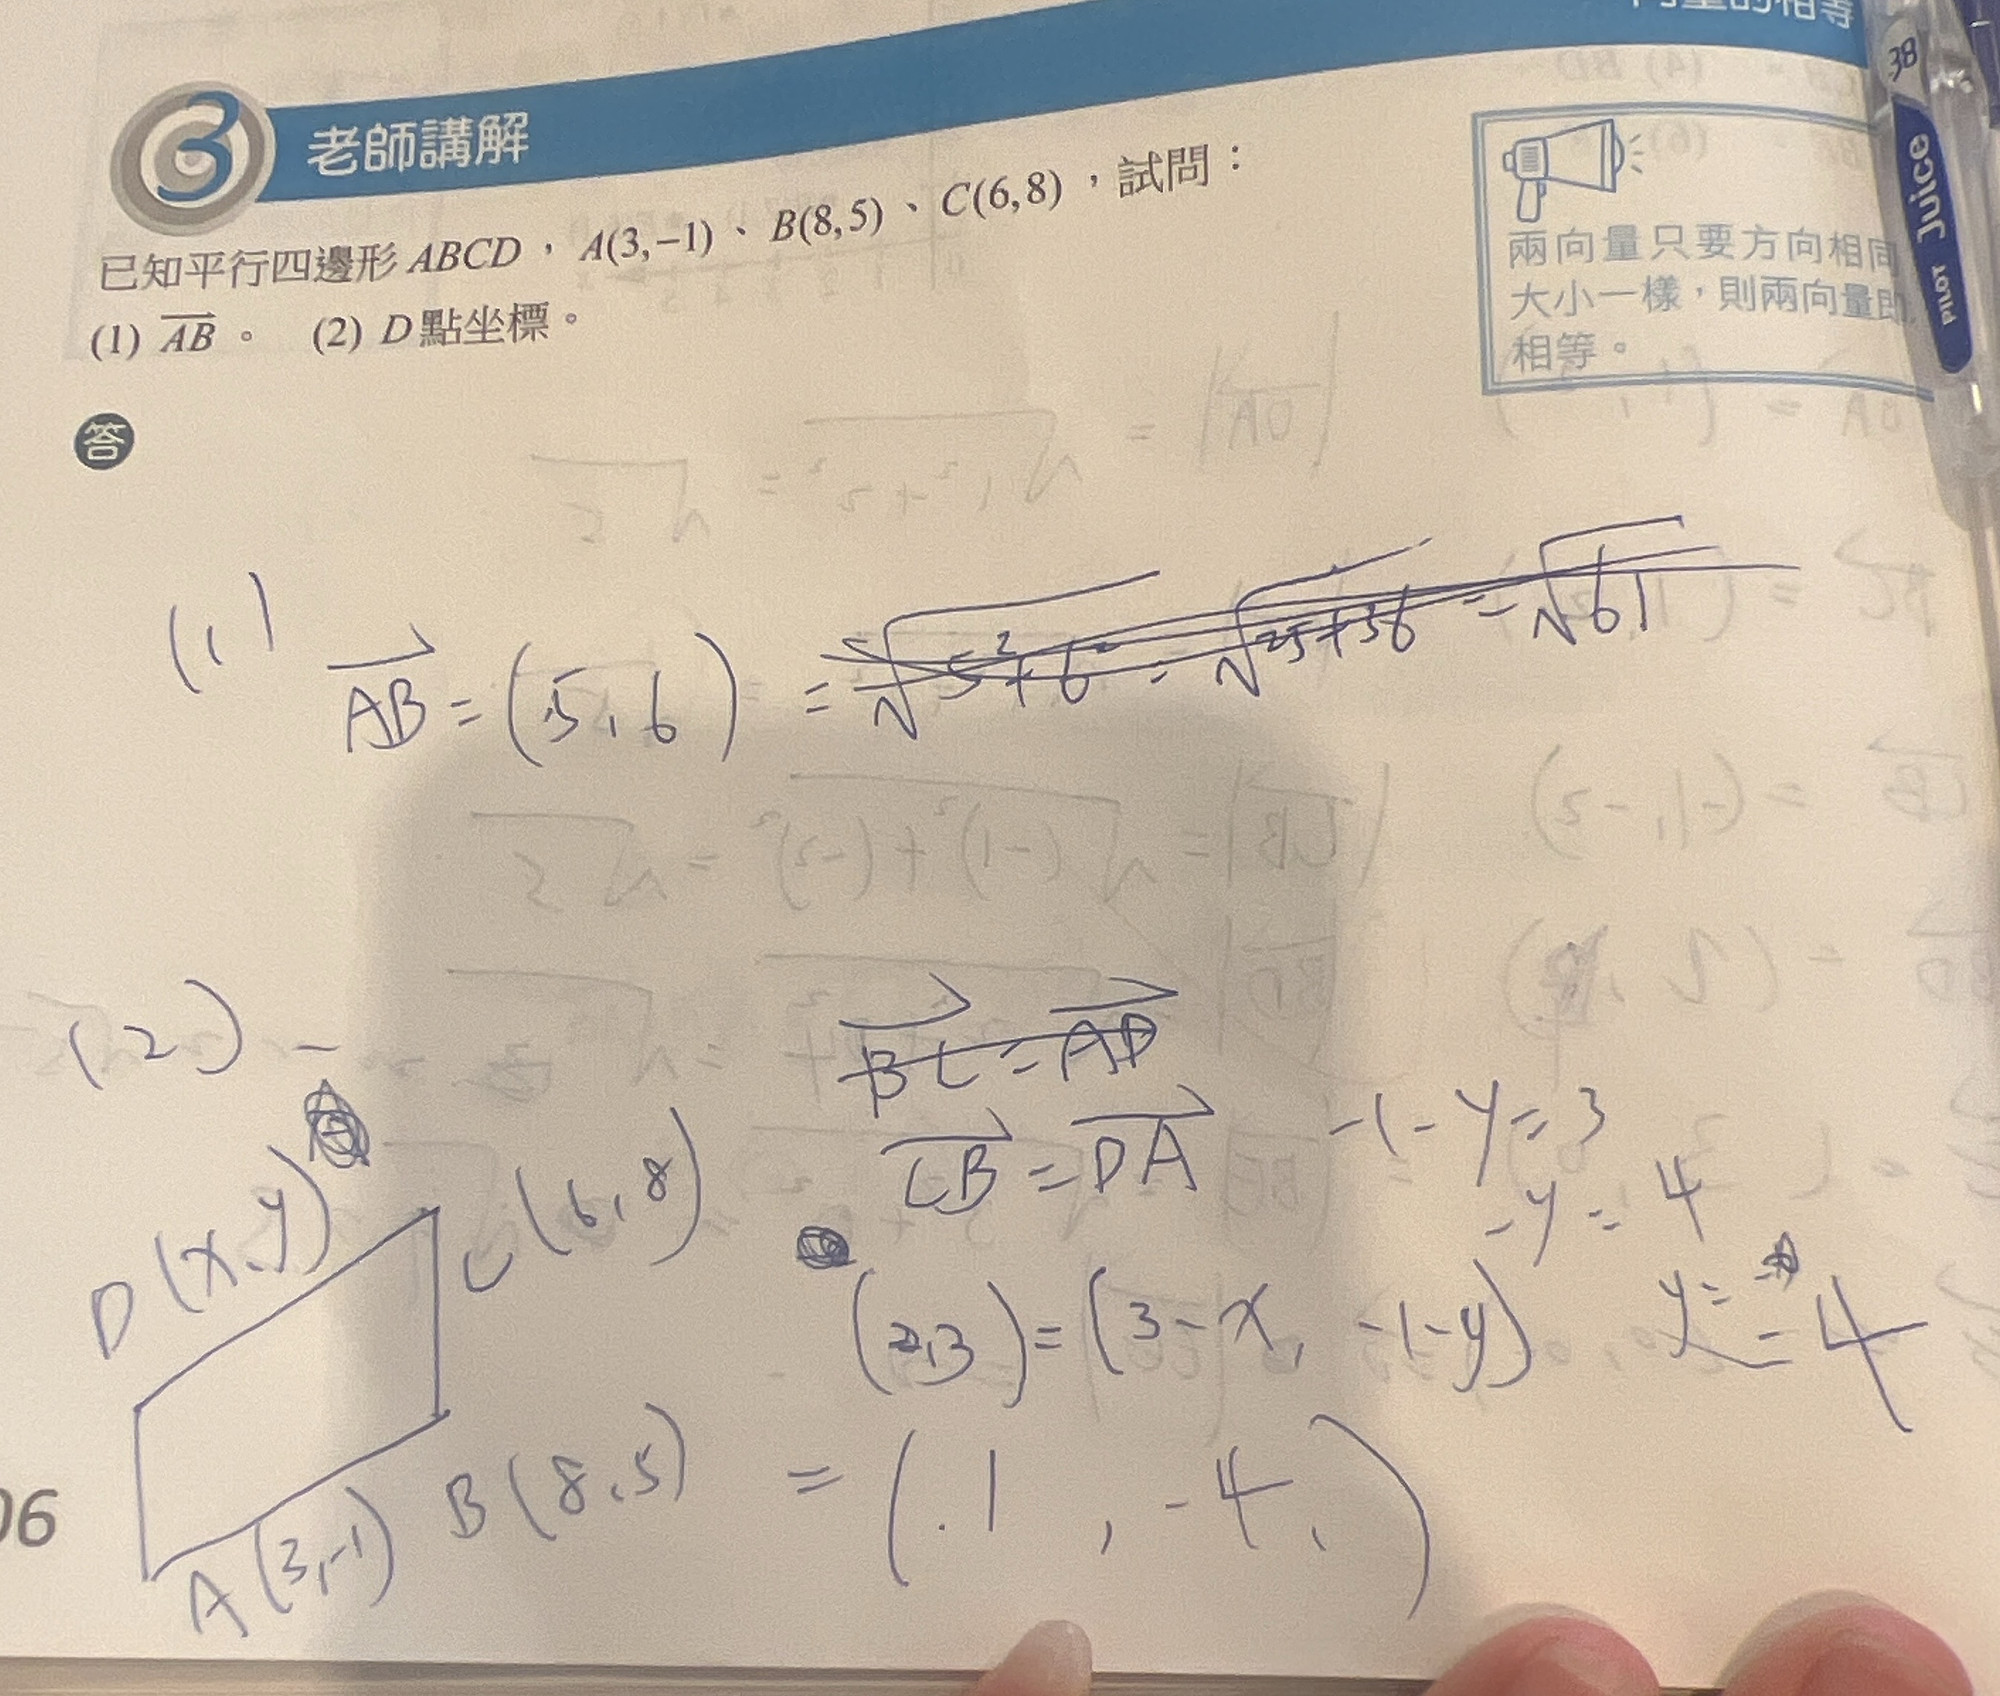 向量的相等
3 老師講解
已知平行四邊形 ABCD，A(3,−1)、B(8,5)、C(6,8)，試問：
(1) AB。 (2) D 點坐標。
兩向量只要方向相同
大小一樣，則兩向量即
相等。
38
PILOT Juice
答
(1) AB = (5,6) = √5²+6² = √25+36 = √61
(2)
BC = AD
CB = DA
-1-y=3
-y=4
y=-4
D(x,y)
C(6,8)
(2,3)=(3-x, -1-y)
A(3,-1)
B(8,5)
=(1, -4,)
06